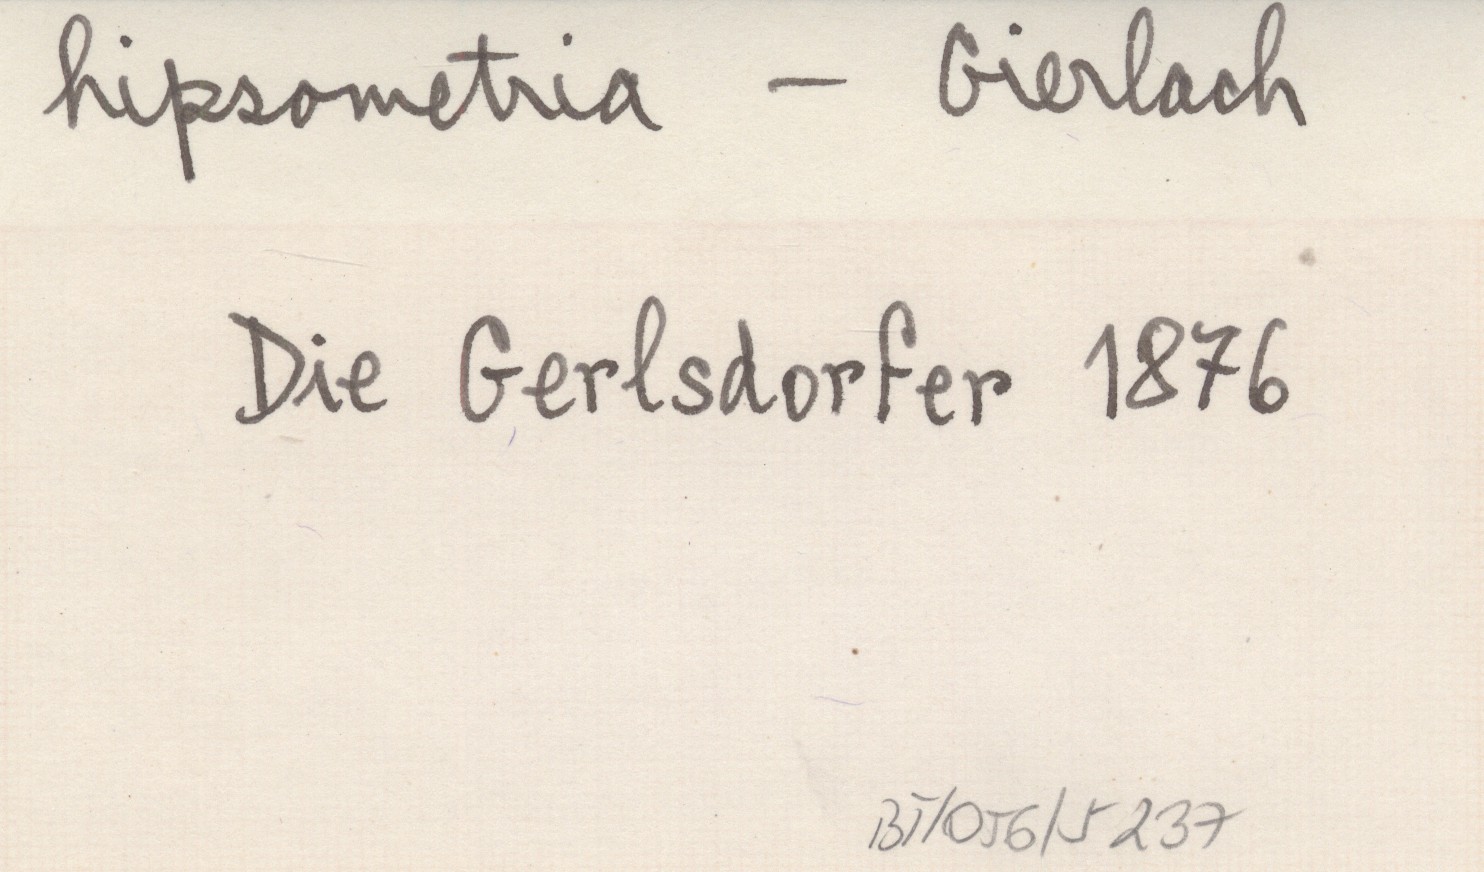 hipsometria – Gierlach
Die Gerlsdorfer 1876
BT/056/5237